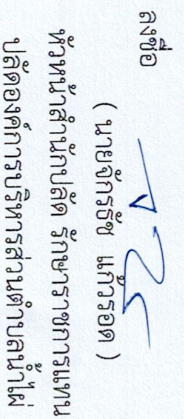 ลงชื่อ
( นายจักรชัย แก้วรอด )
หัวหน้าสำนักปลัด รักษาราชการแทน
ปลัดองค์การบริหารส่วนตำบลน้ำไผ่